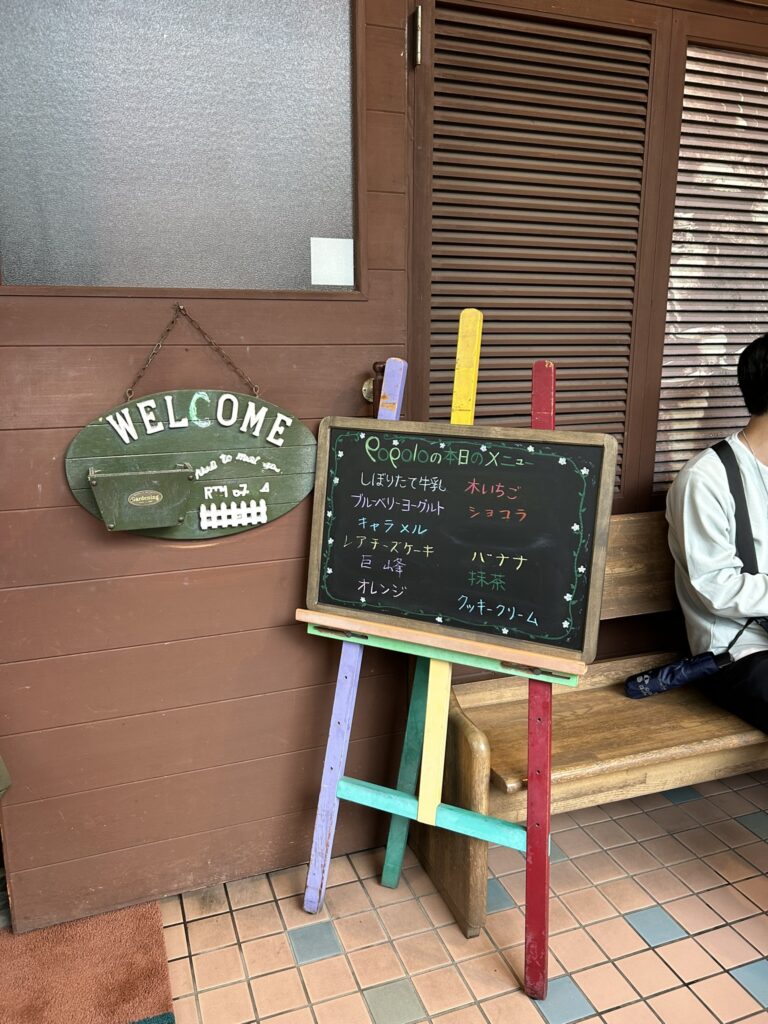 WELCOME
Gardening
Popoloの本日のメニュー
しぼりたて牛乳
ブルーベリーヨーグルト
キャラメル
レアチーズケーキ
巨峰
オレンジ
木いちご
ショコラ
バナナ
抹茶
クッキークリーム